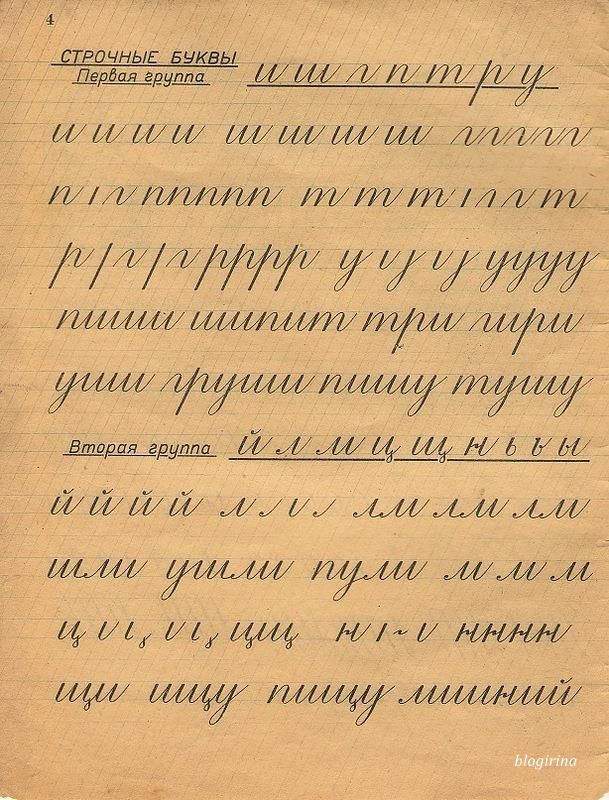 4
СТРОЧНЫЕ БУКВЫ
Первая группа и ш г п т р у
и и и и ш ш ш ш г г г г г
п г п п п п п т т т г г т
р г г р р р р у у у у у
пиши шипит три гири
уши груши пишу тушу
Вторая группа й л м ц щ н ь ъ ы
й й й й л лм лм лм
шли ушли пули м м м
ц цщ н н н н н
щи ищу пищу лишний
blogirina